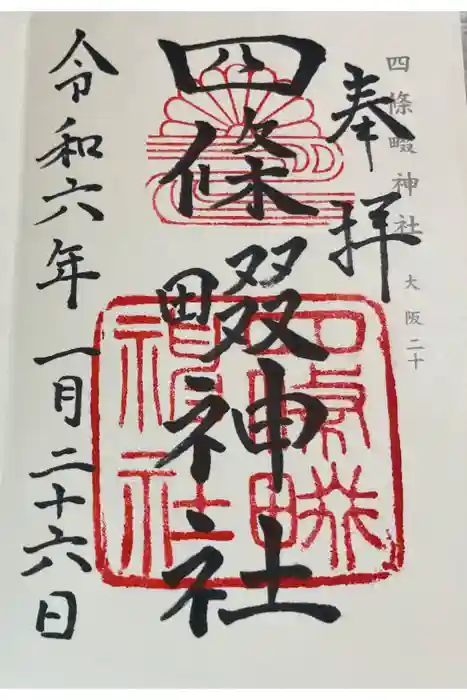 四條畷神社 大阪二十
奉拝
四條畷神社
令和六年一月二十六日